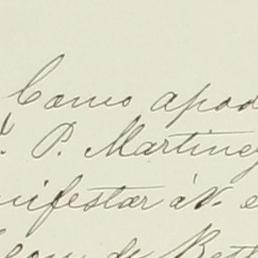 Como apod
P. Martinez
nifestar à V. e
de Bet